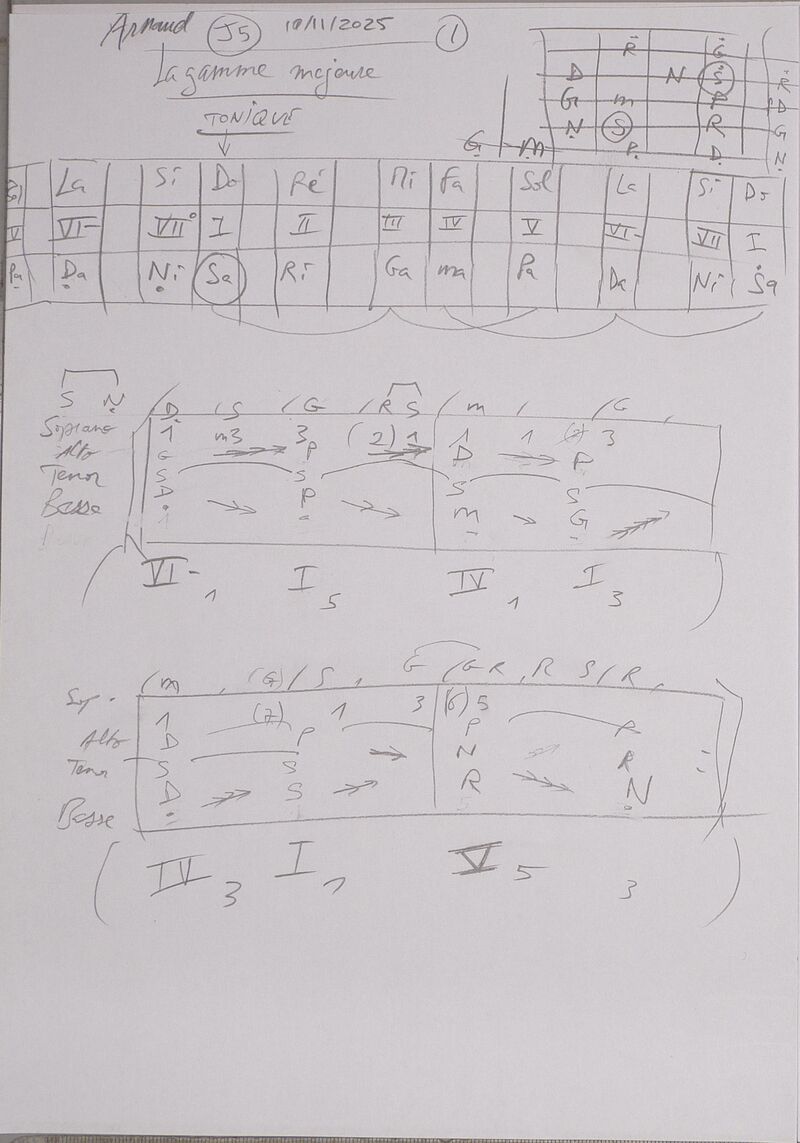 Arnaud J5 10/11/2025 1
La gamme majeure
TONIQUE
R G
D N S R
G m P D
N S R G
G m P D N
Sol La Si Do Ré Mi Fa Sol La Si Do
V VI- VII° I II III IV V VI- VII I
Pa Da Ni Sa Ri Ga ma Pa Da Ni Sa
S N / D , S / G , R S / m , / G ,
Soprano 1 m3 3 (2) 1 1 1 3
Alto G P D P
Tenor S S S S
Basse D P m G
VI- 1 I 5 IV 1 I 3
/ m , (G) / S , G / G R , R S / R ,
Sop. 1 (7) 1 3 (6) 5
Alto D P P R
Tenor S S N R
Basse D S R N
IV 3 I 1 V 5 3